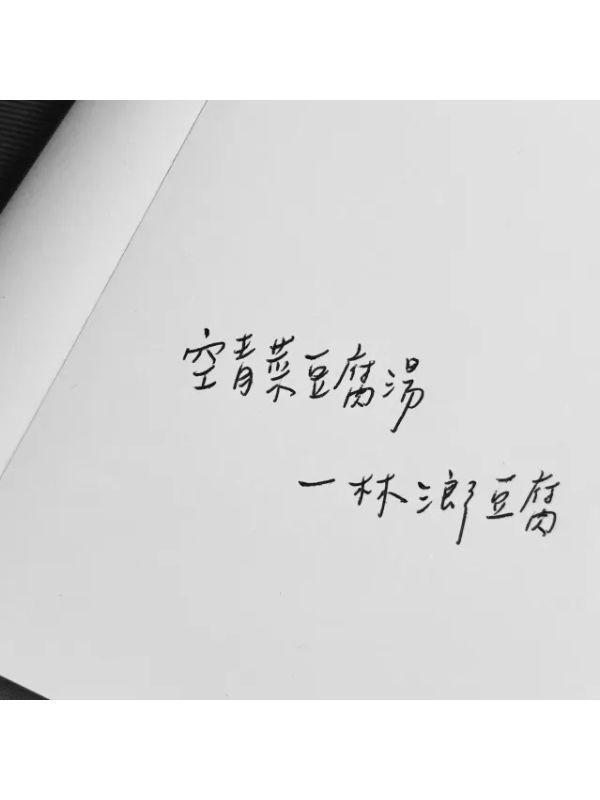 空青菜豆腐湯
一林瀏豆腐